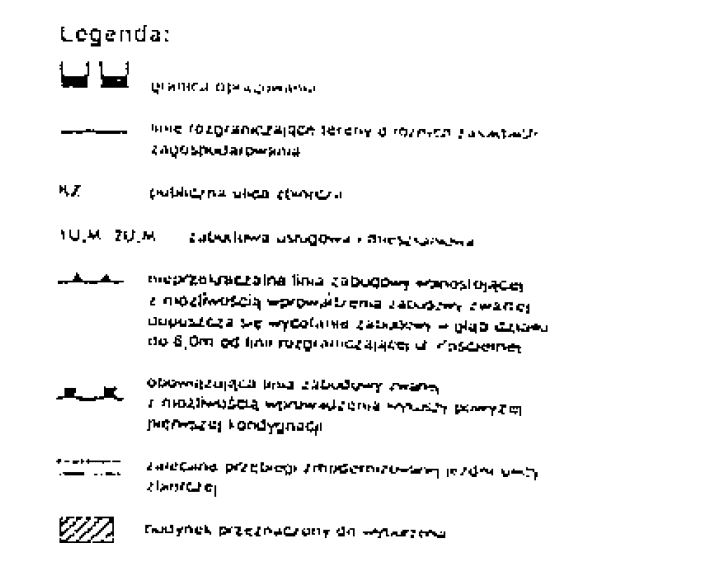 Legenda:
granica opracowania
linie rozgraniczające tereny o różnych zasadach
zagospodarowania
KZ publiczna ulica zbiorcza
1U,M 2U,M zabudowa usługowa i mieszkaniowa
nieprzekraczalna linia zabudowy wolnostojącej
z możliwością wprowadzenia zabudowy zwartej
dopuszcza się wycofanie zabudowy w głąb działki
do 6,0m od linii rozgraniczającej ul. Kościelnej
obowiązująca linia zabudowy zwartej
z możliwością wprowadzenia powyżej
pierwszej kondygnacji
zalecane przebiegi zmodernizowanej jezdni ulicy
zbiorczej
budynek przeznaczony do wyburzenia